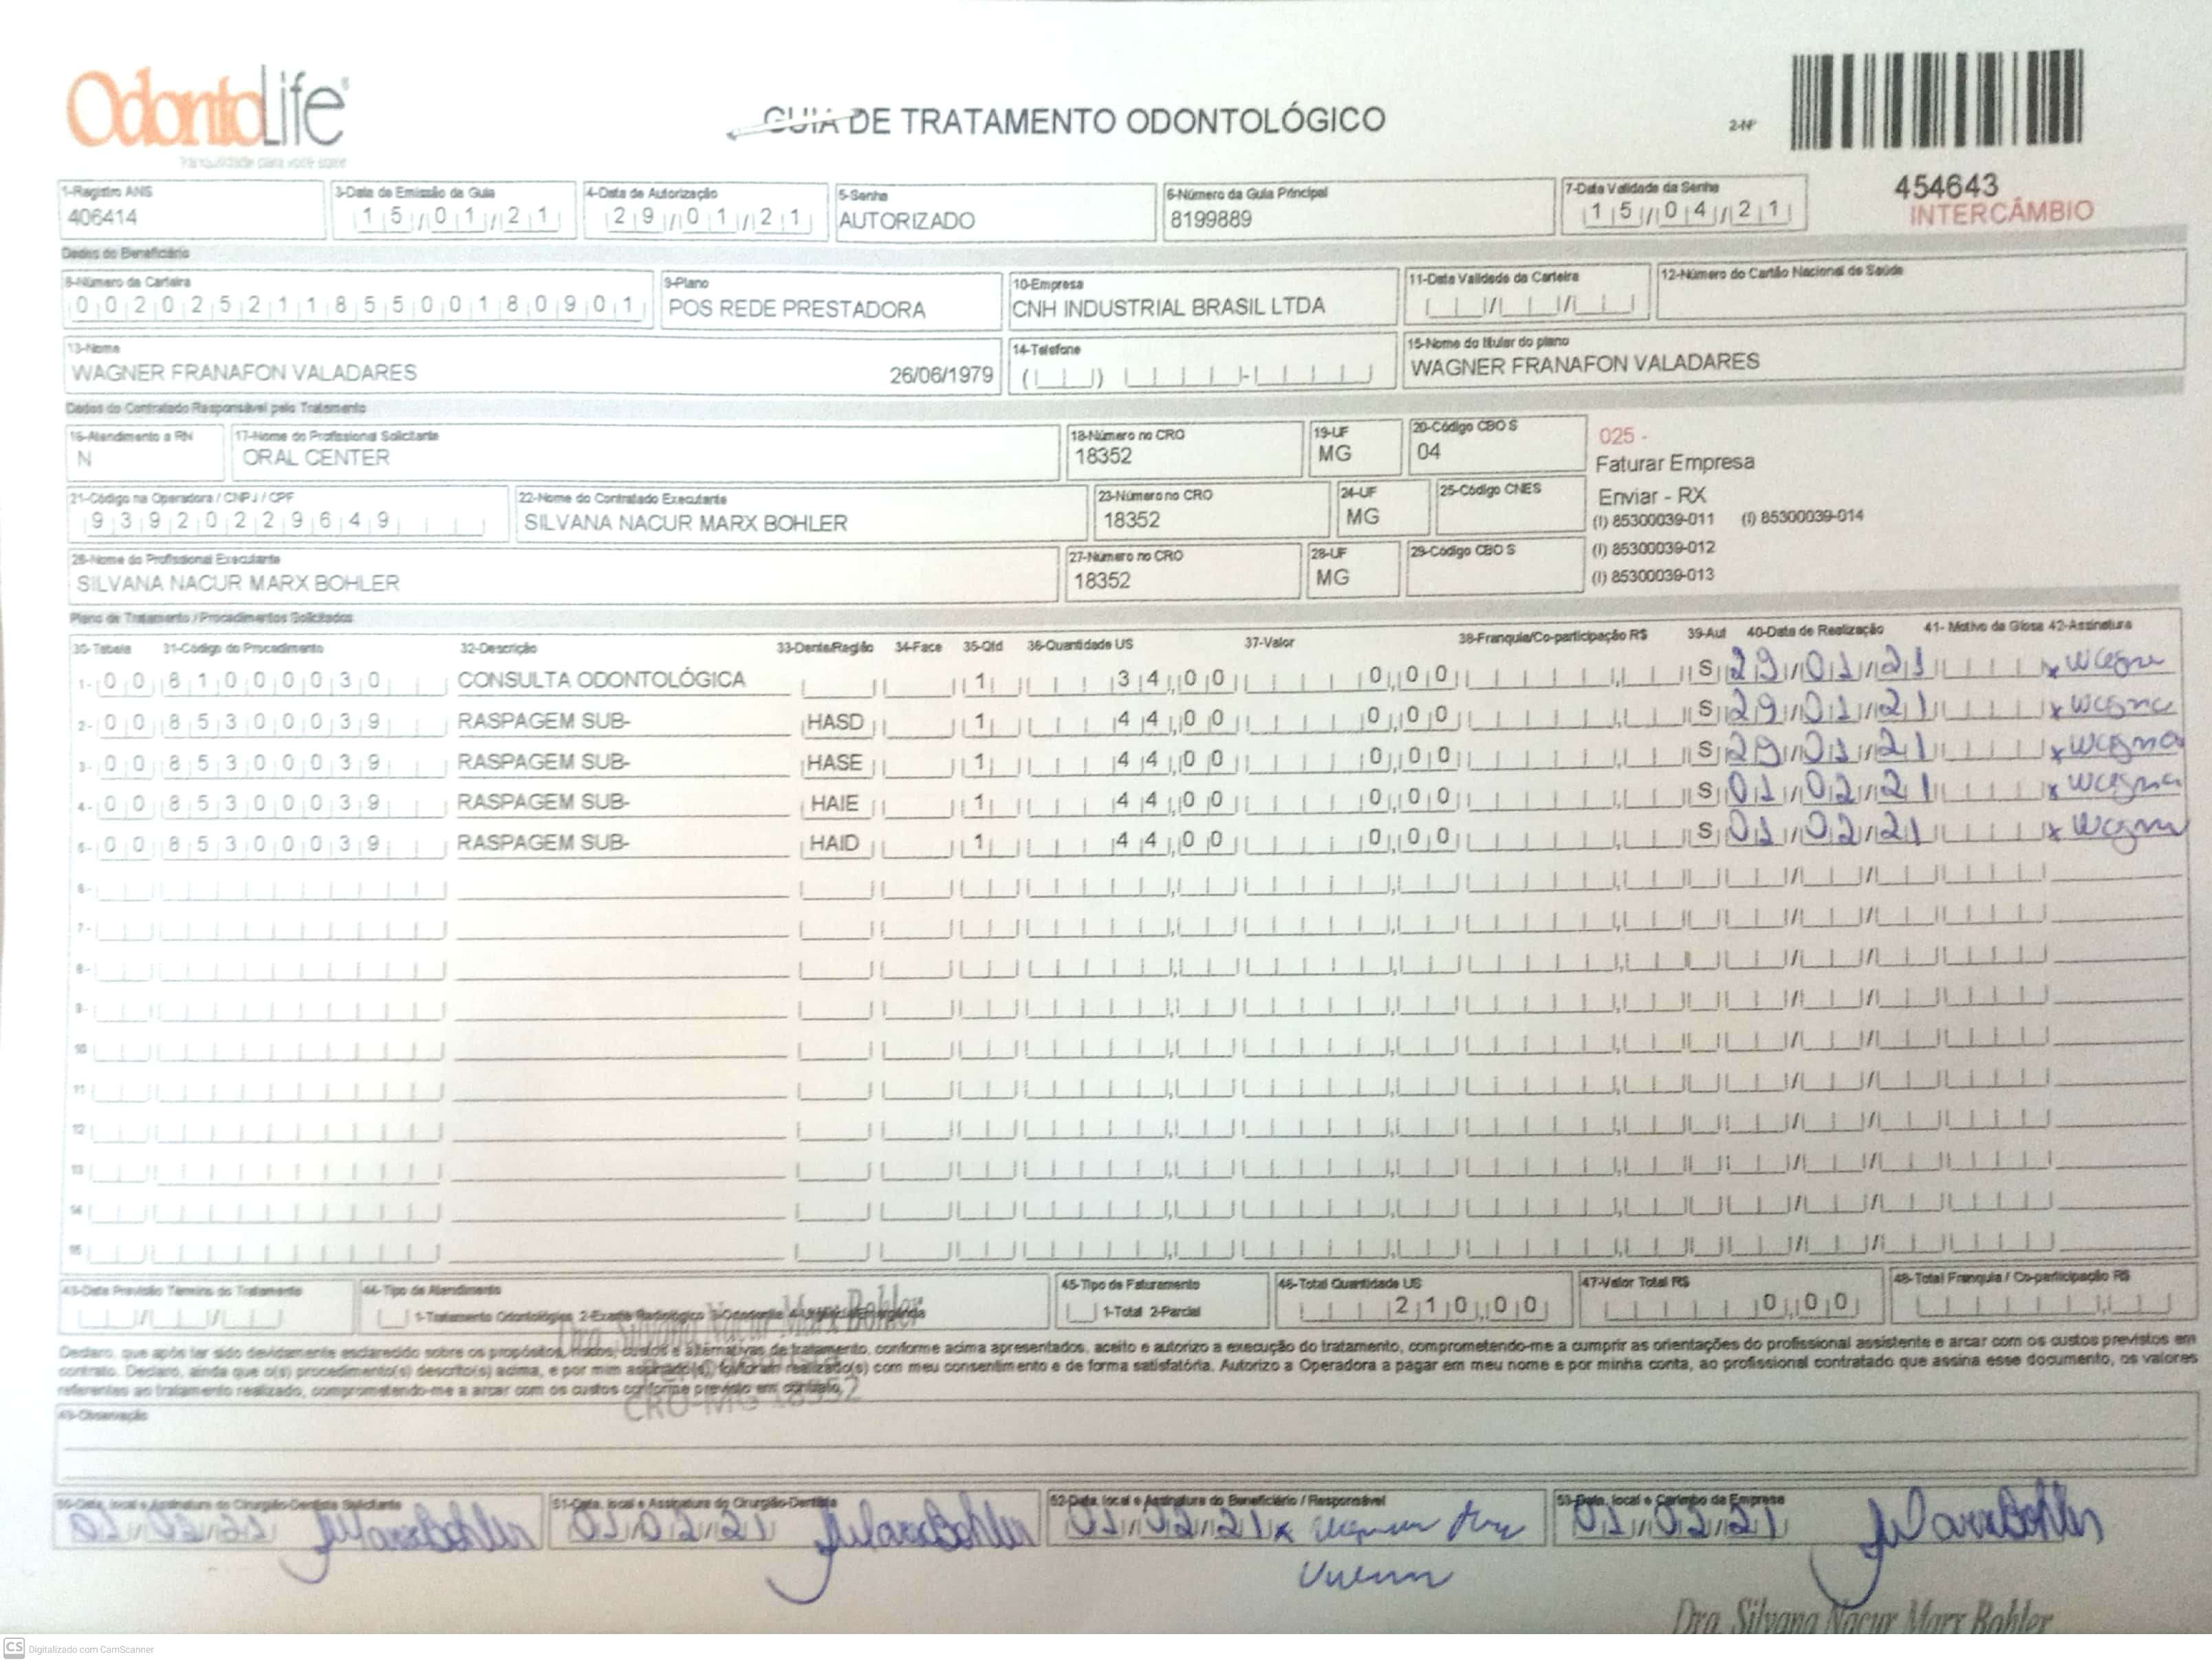 OdontoLife®
Tranquilidade para você sorrir
GUIA DE TRATAMENTO ODONTOLÓGICO
2-Nº
454643
INTERCÂMBIO
1-Registro ANS
406414
3-Data de Emissão da Guia
15/01/21
4-Data de Autorização
29/01/21
5-Senha
AUTORIZADO
6-Número da Guia Principal
8199889
7-Data Validade da Senha
15/04/21
Dados do Beneficiário
8-Número da Carteira
00202521185500180901
9-Plano
POS REDE PRESTADORA
10-Empresa
CNH INDUSTRIAL BRASIL LTDA
11-Data Validade da Carteira
12-Número do Cartão Nacional de Saúde
13-Nome
WAGNER FRANAFON VALADARES 26/06/1979
14-Telefone
15-Nome do titular do plano
WAGNER FRANAFON VALADARES
Dados do Contratado Responsável pelo Tratamento
16-Atendimento a RN
N
17-Nome do Profissional Solicitante
ORAL CENTER
18-Número no CRO
18352
19-UF
MG
20-Código CBO S
04
025 -
Faturar Empresa
Enviar - RX
(I) 85300039-011 (I) 85300039-014
(I) 85300039-012
(I) 85300039-013
21-Código na Operadora / CNPJ / CPF
93920229649
22-Nome do Contratado Executante
SILVANA NACUR MARX BOHLER
23-Número no CRO
18352
24-UF
MG
25-Código CNES
26-Nome do Profissional Executante
SILVANA NACUR MARX BOHLER
27-Número no CRO
18352
28-UF
MG
29-Código CBO S
Plano de Tratamento / Procedimentos Solicitados
30-Tabela 31-Código do Procedimento 32-Descrição 33-Dente/Região 34-Face 35-Qtd 36-Quantidade US 37-Valor 38-Franquia/Co-participação R$ 39-Aut 40-Data de Realização 41- Motivo da Glosa 42-Assinatura
1- 00 81000030 CONSULTA ODONTOLÓGICA 1 34,00 0,00 S 29/01/21 x Wagner
2- 00 85300039 RASPAGEM SUB- HASD 1 44,00 0,00 S 29/01/21 x Wagner
3- 00 85300039 RASPAGEM SUB- HASE 1 44,00 0,00 S 29/01/21 x Wagner
4- 00 85300039 RASPAGEM SUB- HAIE 1 44,00 0,00 S 01/02/21 x Wagner
5- 00 85300039 RASPAGEM SUB- HAID 1 44,00 0,00 S 01/02/21 x Wagner
6-
7-
8-
9-
10
11
12
13
14
15
43-Data Previsão Término do Tratamento
44- Tipo de Atendimento
1-Tratamento Odontológico 2-Exame Radiológico 3-Ortodontia 4-Urgência/Emergência
45-Tipo de Faturamento
1-Total 2-Parcial
46-Total Quantidade US
210,00
47-Valor Total R$
0,00
48-Total Franquia / Co-participação R$
Dra. Silvana Nacur Marx Bohler
Declaro, que após ter sido devidamente esclarecido sobre os propósitos, riscos, custos e alternativas de tratamento, conforme acima apresentados, aceito e autorizo a execução do tratamento, comprometendo-me a cumprir as orientações do profissional assistente e arcar com os custos previstos em
contrato. Declaro, ainda que o(s) procedimento(s) descrito(s) acima, e por mim assinado(s), foi/foram realizado(s) com meu consentimento e de forma satisfatória. Autorizo a Operadora a pagar em meu nome e por minha conta, ao profissional contratado que assina esse documento, os valores
referentes ao tratamento realizado, comprometendo-me a arcar com os custos conforme previsto em contrato.
CRO-MG 18352
49-Observação
50-Data, local e Assinatura do Cirurgião-Dentista Solicitante
01/02/21
51-Data, local e Assinatura do Cirurgião-Dentista
01/02/21
52-Data, local e Assinatura do Beneficiário / Responsável
01/02/21 x
53-Data, local e Carimbo da Empresa
01/02/21
Dra. Silvana Nacur Marx Bohler
CS Digitalizado com CamScanner